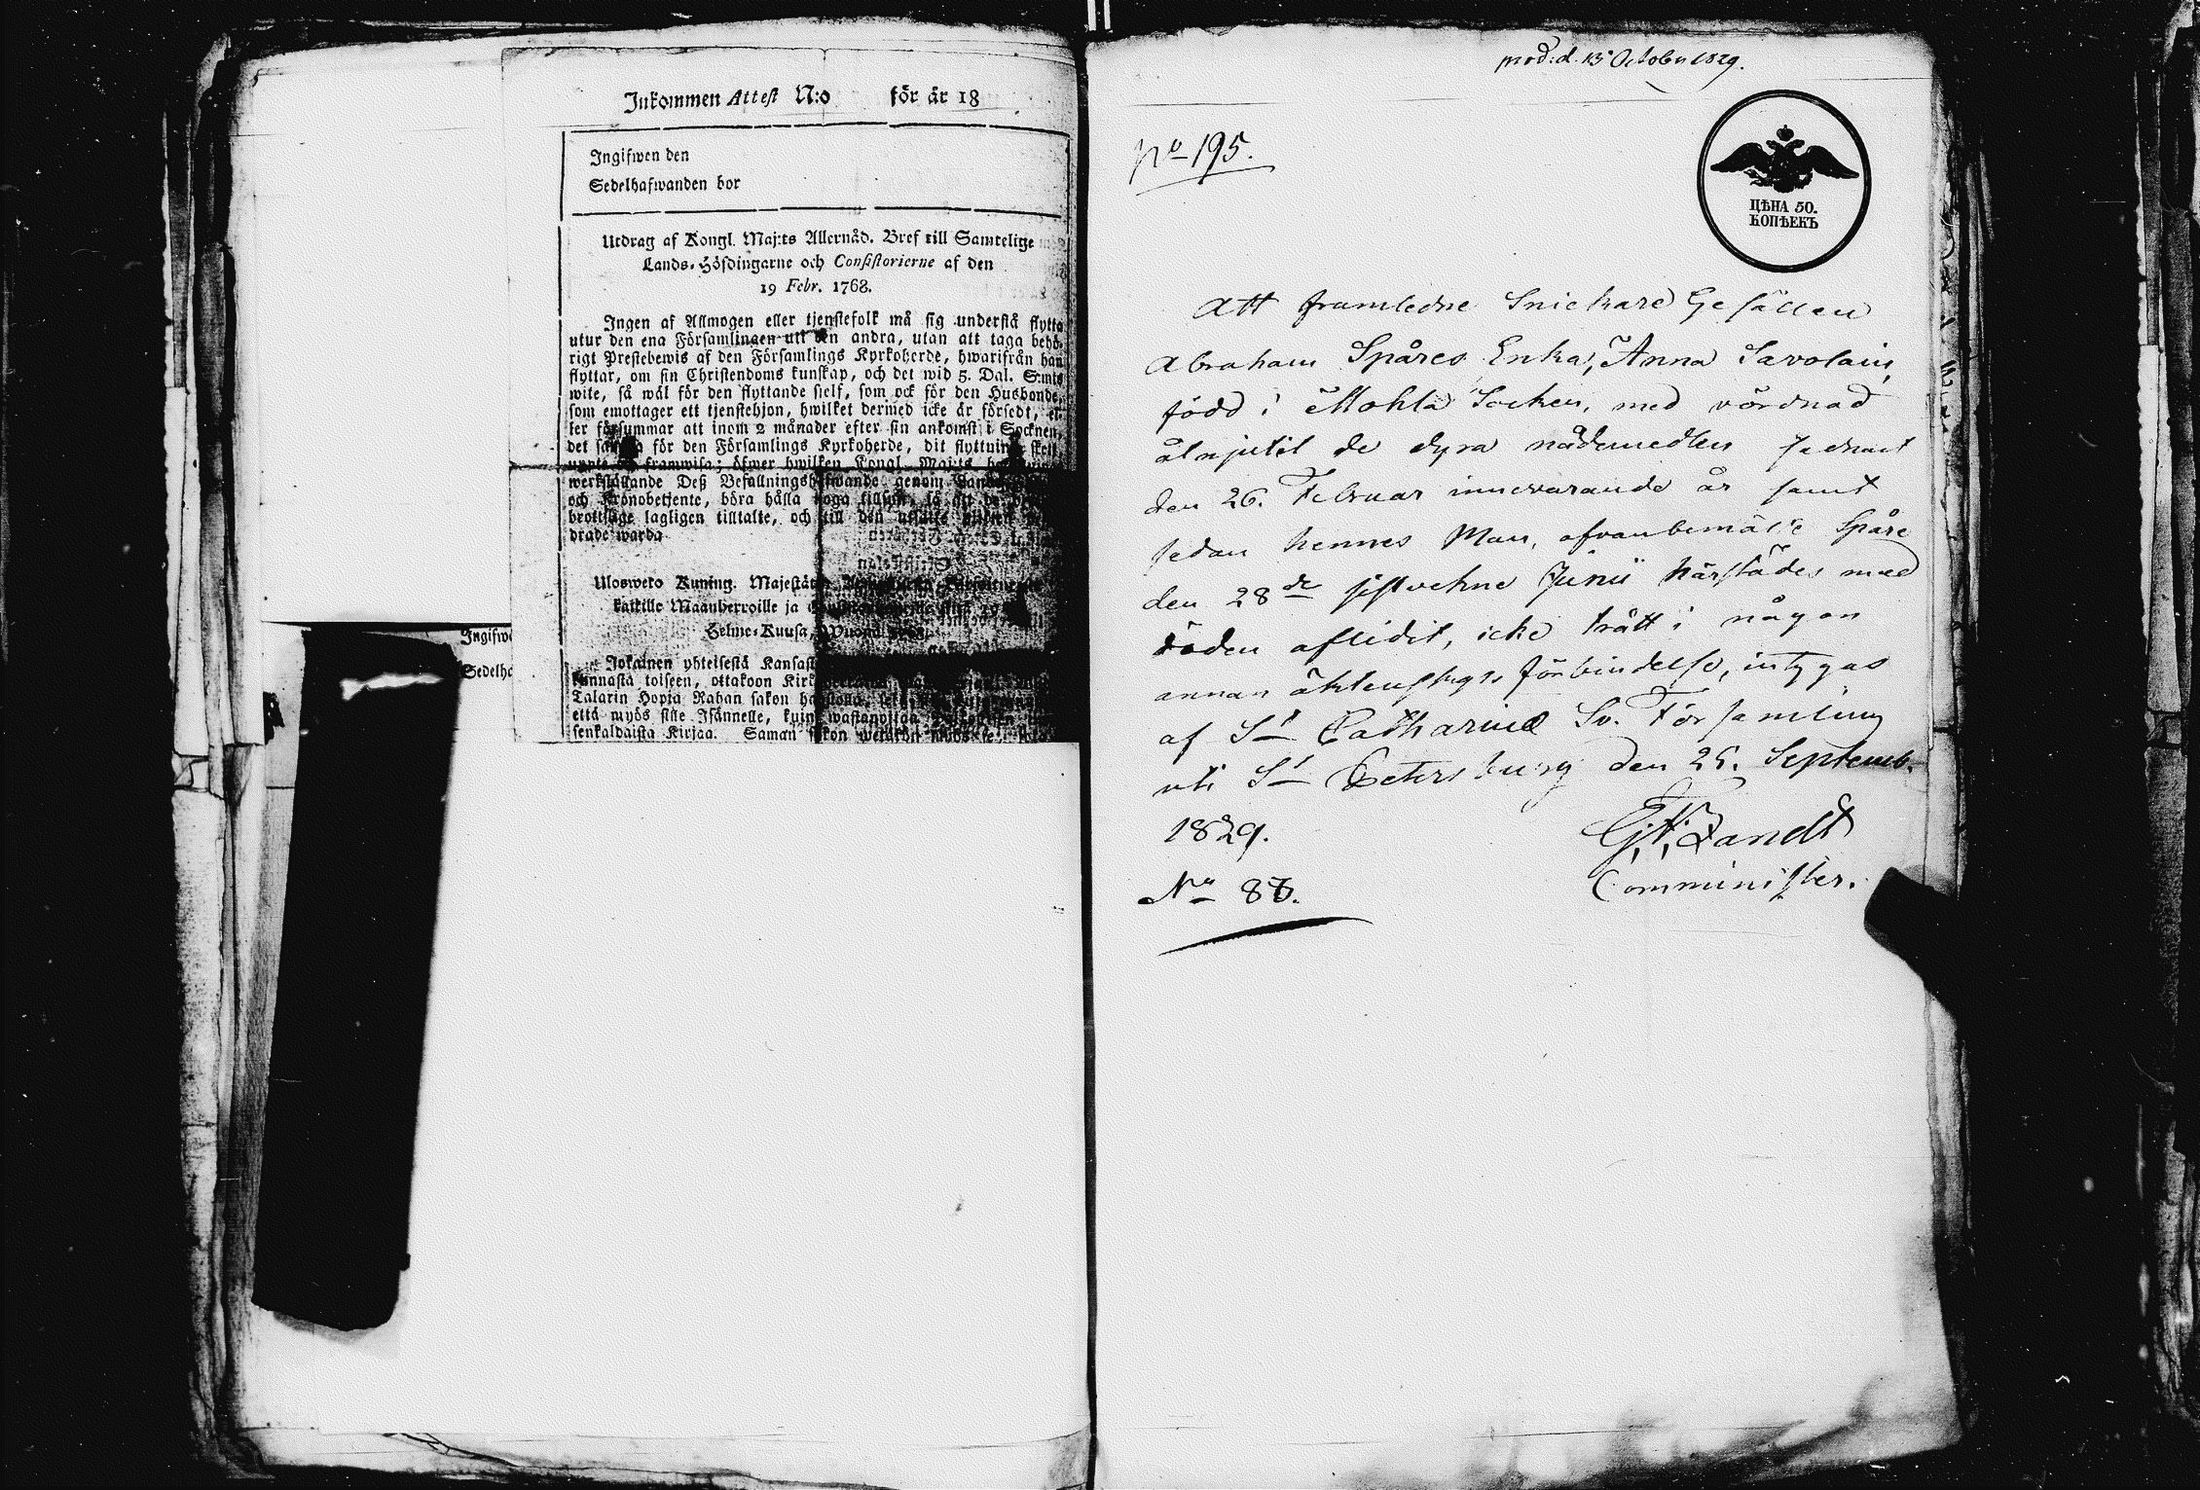 Inkommen Attest N:o för år 18
Ingifwen den
Sedelhafwanden bor
Utdrag af Kongl. Maj:ts Allernåd. Bref till Samtelige
Lands-Höfdingarne och Consistorierne af den
19 Febr. 1768.
Ingen af Allmogen eller tjenstefolk må sig understå flytta
utur den ena Församlingen utt den andra, utan att taga behö-
rigt Prestebewis af den Församlings Kyrkoherde, hwarifrån han
flyttar, om sin Christendoms kunskap, och det wid 5. Dal. S:mts
wite, så wäl för den flyttande sjelf, som ock för den Husbonde,
som emottager ett tjenstehjon, hwilket dermed icke är försedt, el-
ler försummar att inom 2 månader efter sin ankomst i Socknen,
det för den Församlings Kyrkoherde, dit flyttning skett
framwisa; öfwer hwilken Kongl. Maj:ts
werkställande Deß Befallningshafwande genom
och Kronobetjente, böra hålla noga tillsyn, så att
brottslige lagligen tilltalte, och till den
drade warda
Ulosweto Kuning. Majestätin
kaikille Maanherroille ja 19
Helme-Kuusa, Wuonna
Jokainen yhteisestä Kansasta
kunnasta toiseen, ottakoon
Talarin Hopia Rahan sakon
että myös sille Isännelle, kuin
senkaldaista Kirjaa. Saman sakon
Ingifwe
Sedelha
prod: d. 13 October 1829.
No 195.
ЦѢНА 50.
КОПѢЕКЪ
Att framledne Snickare Gesällen
Abraham Spåres Enka, Anna Savolain,
född i Mohla Socken, med vördnad
åtnjutit de dyra nådemedlen sednast
den 26. Februar innevarande år samt
sedan hennes Man, ofvanbemälte Spåre
den 28de sistvekne Junii härstädes med
döden aflidit, icke trätt i någon
annan äktenskaps förbindelse, intygas
af St Catharinæ Sv. Församling
uti St Petersburg den 25. Septemb.
1829.
G.F. Zandt
Comminister.
No 86.